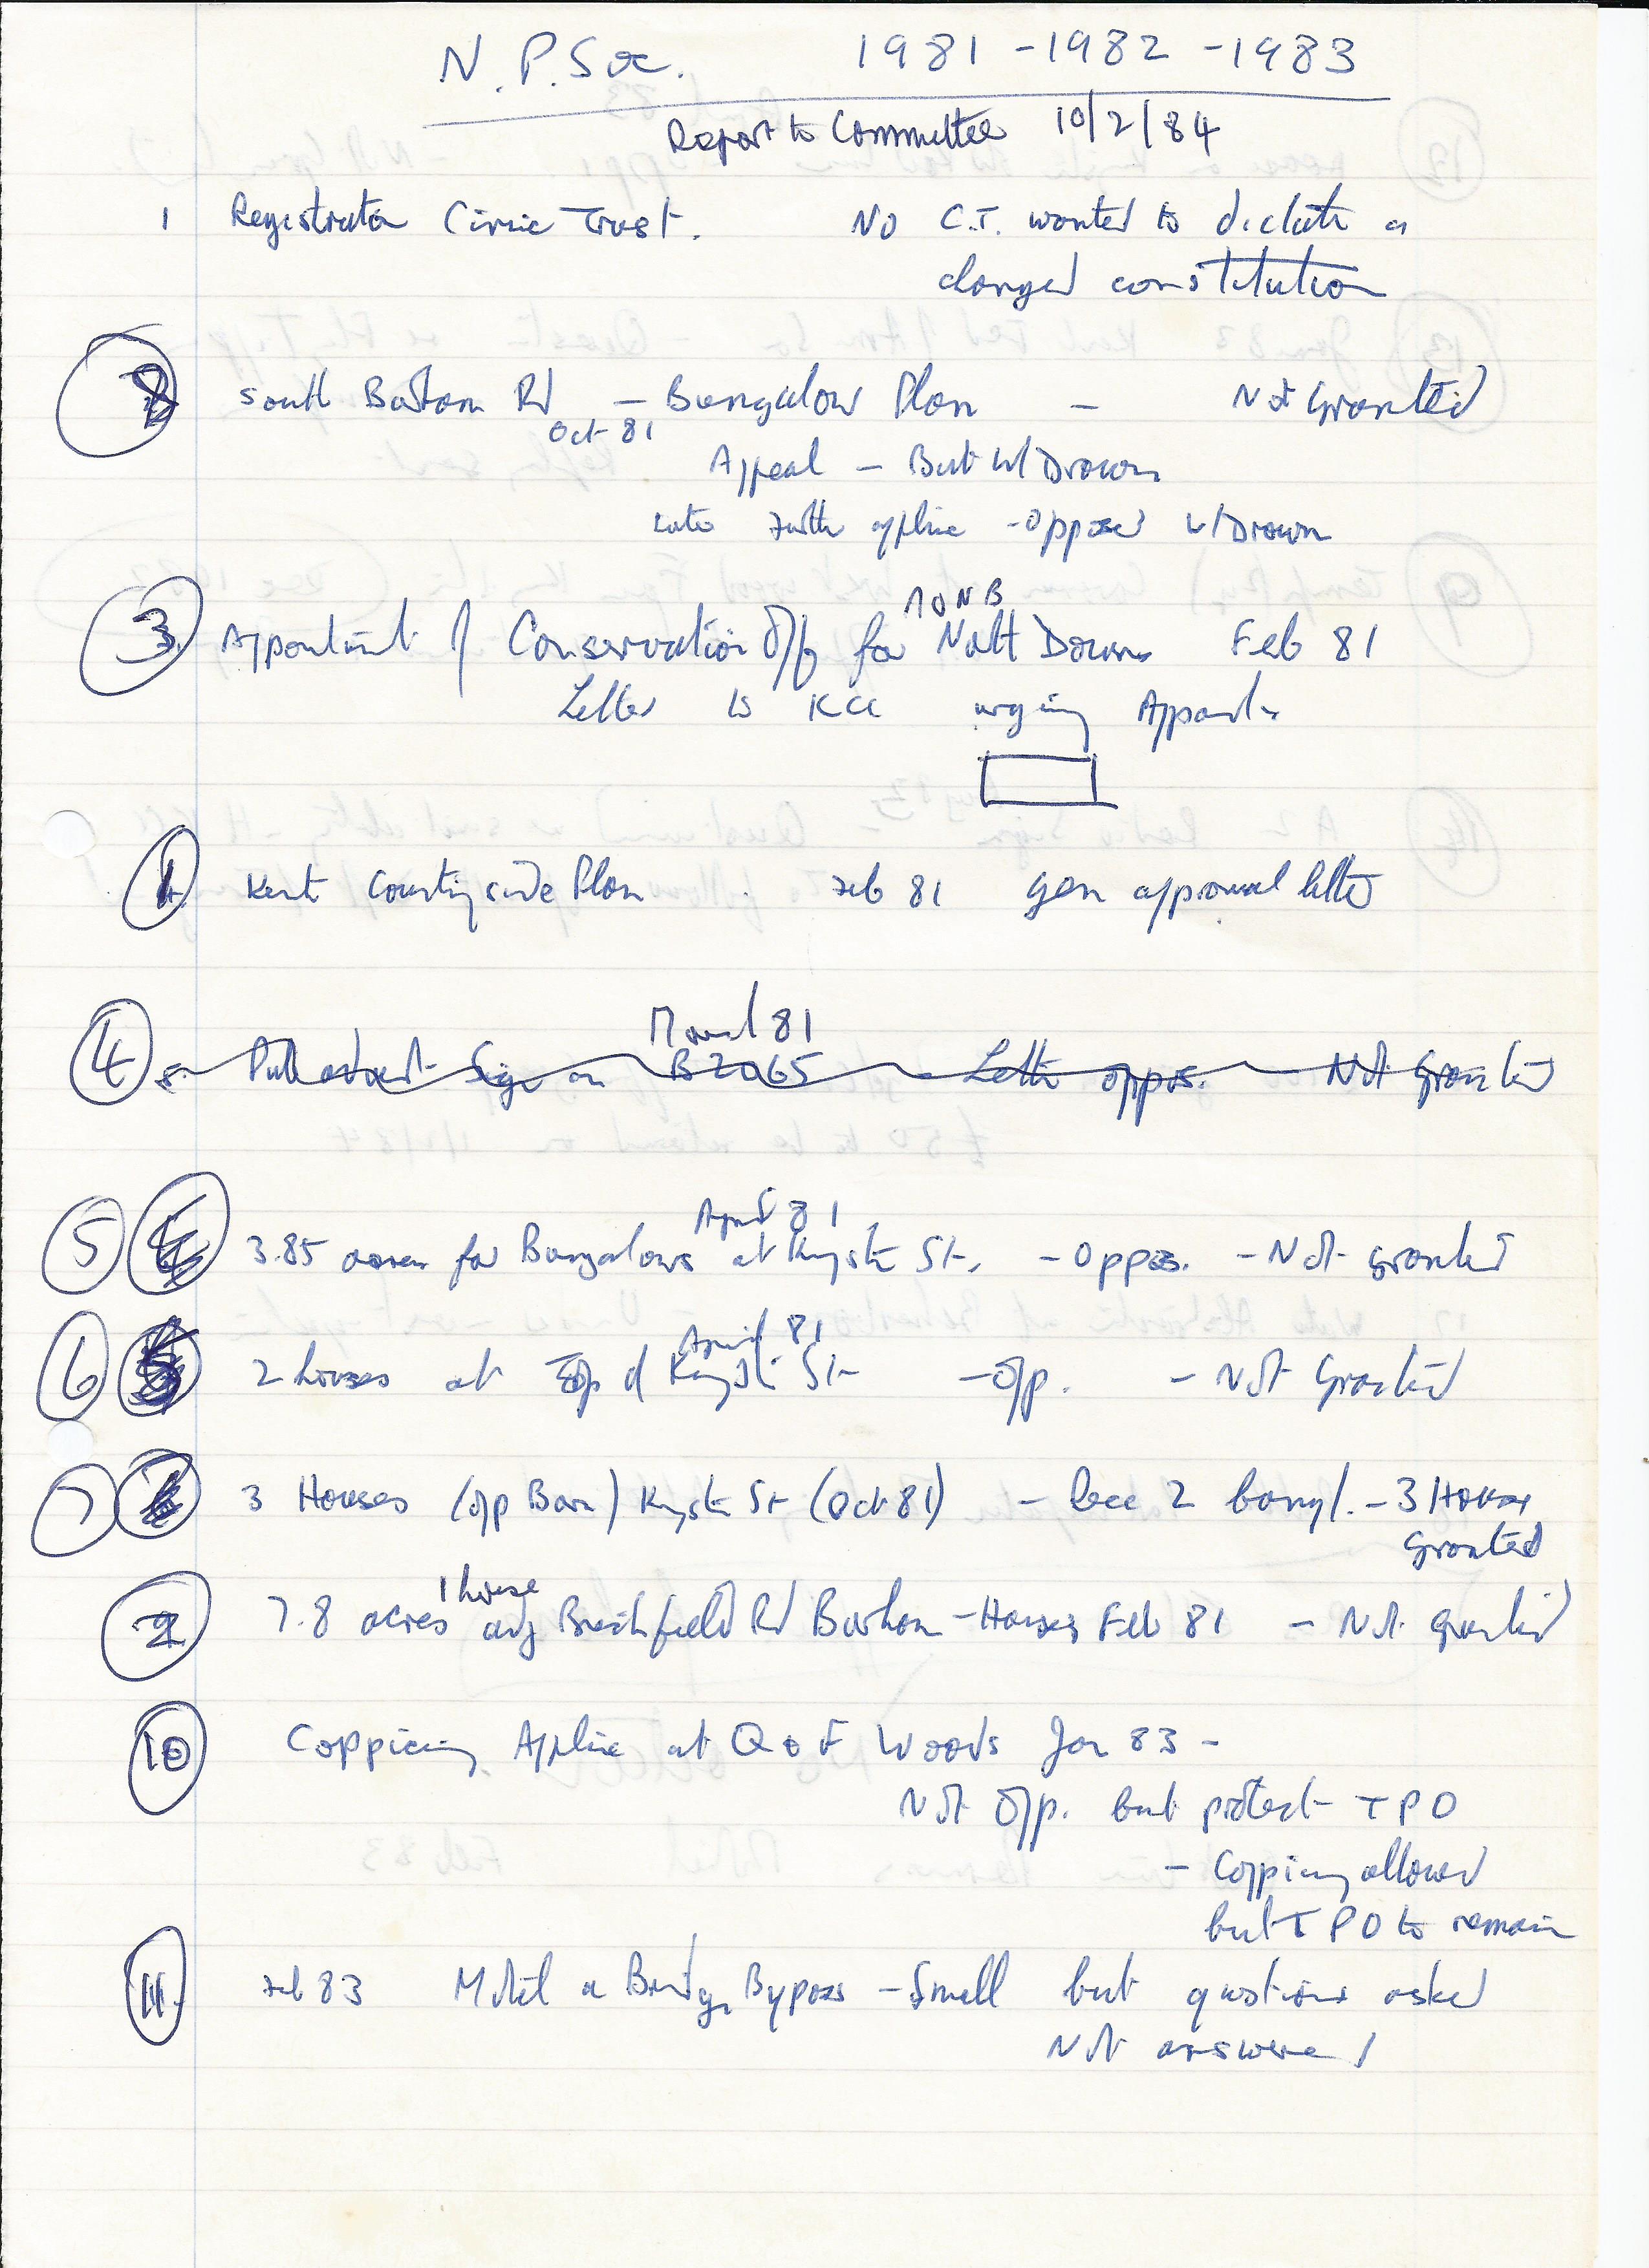 N. P. Soc. 1981 - 1982 - 1983
Report to Committee 10/2/84
1 Registration Civic Trust. No C.T. wanted to dictate a
changed constitution
8 South Barham Rd - Bungalow Plan - Not Granted
Oct 81
Appeal - But W/Drawn
Later Furth applic - Opposed W/Drawn
AONB
3. Appointment of Conservation Off for Nth Downs Feb 81
Letter to KCC urging Appoint
1 Kent Countryside Plan Feb 81 gen approval letter
March 81
4 5. advert Sign on B2065 Letter oppos. Not Granted
April 81
5 3.85 acres for Bungalows at Kingston St. - Oppos. - Not granted
April 81
6 5 2 houses at Top of Kingston St - Opp. - Not Granted
7 3 Houses (opp Barn) Kingston St (Oct 81) - 2 bungl. - 3 Houses
Granted
1 house
2 7.8 acres adj Breachfield Rd Barham - Houses Feb 81 - Not Granted
10 Coppicing Applic at Woods Jan 83 -
Not Opp. but protect TPO
- Coppicing allowed
but TPO to remain
11. Feb 83 Motel on Bridge Bypass - Small but questions asked
Not answered